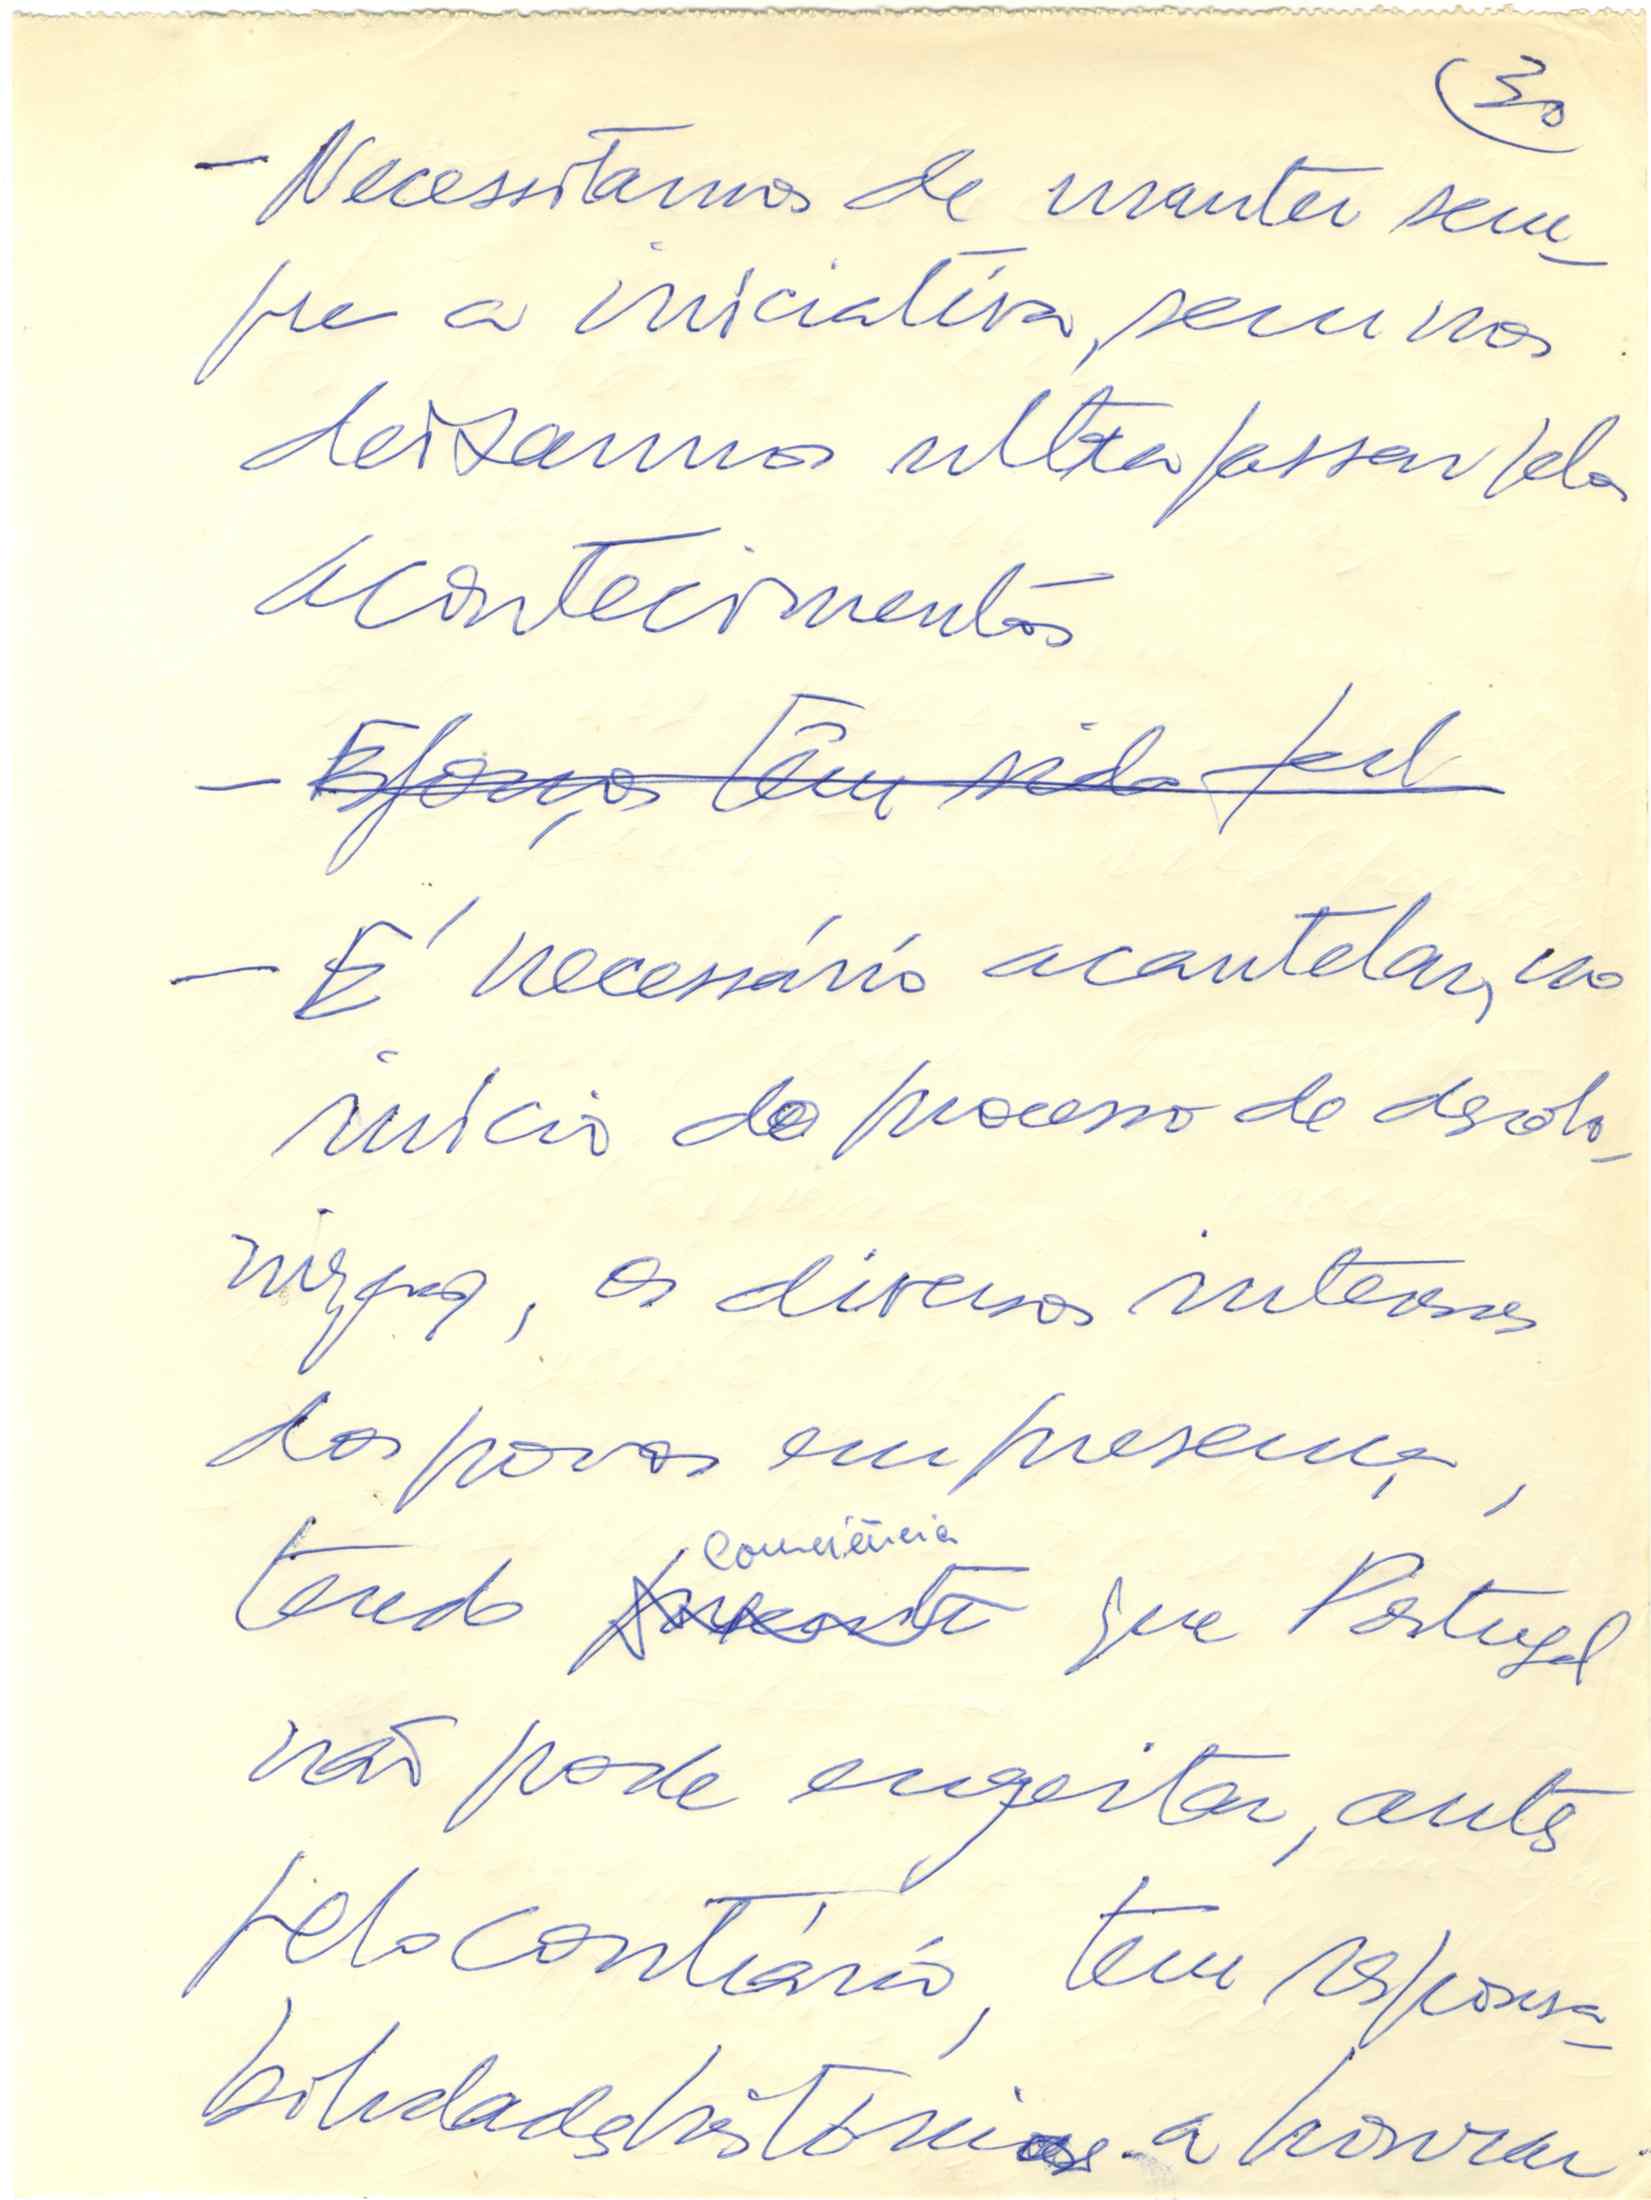 30
- Necessitamos de manter sem-
pre a iniciativa, sem nos
deixarmos ultrapassar pelos
acontecimentos
- Esforços têm sido pul
- É necessário acautelar, no
início do processo de descolo-
nização, os diversos interesses
dos povos em presença,
consciência
tendo presente que Portugal
não pode engeitar, antes
pelo contrário, tem responsa-
bilidades históricas a honrar.